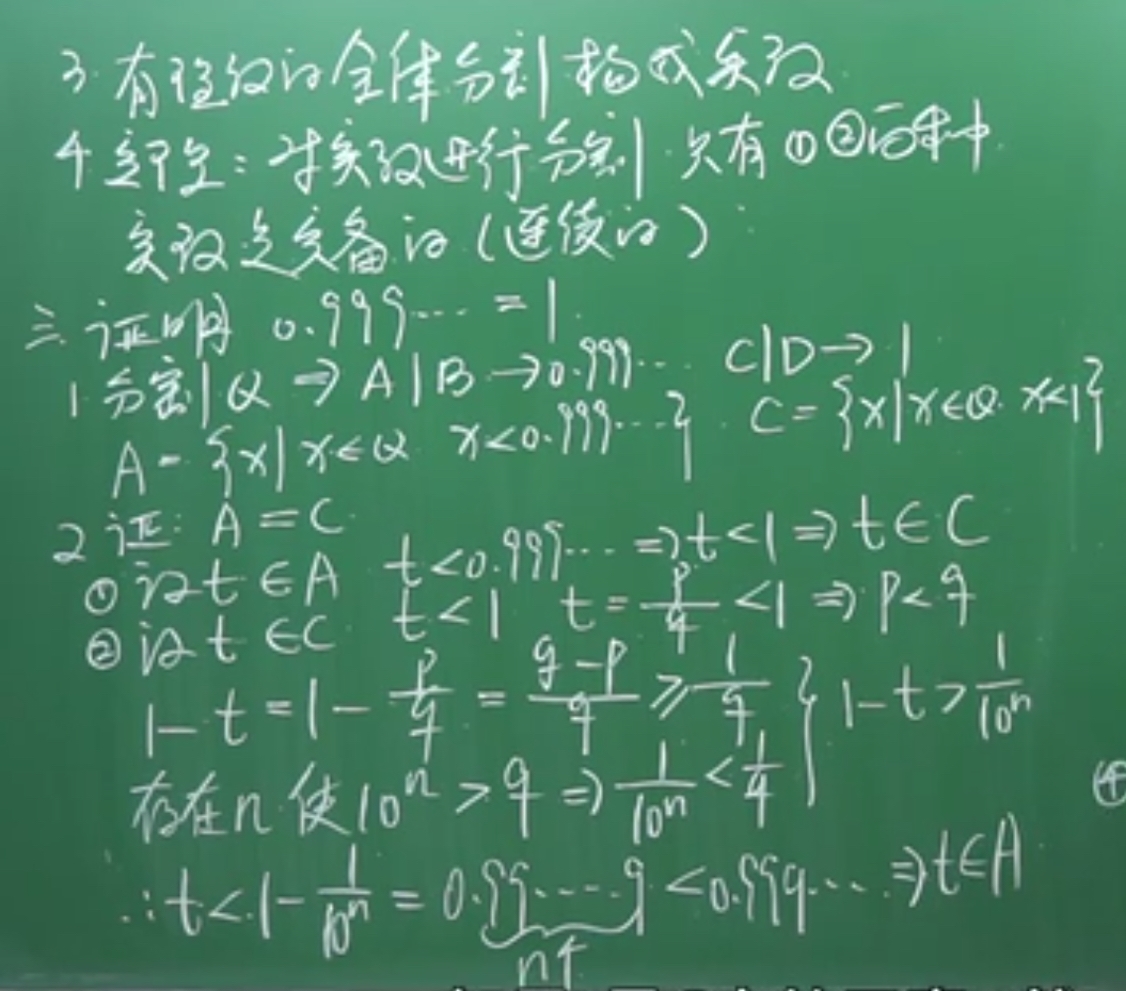 3. 有理数的全体分割构成实数.
4 定理: 对实数进行分割 只有①②两种
实数是完备的 (连续的)
三. 证明 0.999⋯ = 1.
1 分割Q ⇒ A|B → 0.999⋯ C|D → 1
A = {x|x∈Q x<0.999⋯} C = {x|x∈Q x<1}
2 证: A = C
① 设 t ∈ A t < 0.999⋯ ⇒ t < 1 ⇒ t ∈ C
② 设 t ∈ C t < 1 t = p/q < 1 ⇒ p < q
1 - t = 1 - p/q = (q-p)/q ≥ 1/q } 1 - t > 1/10ⁿ
存在n 使 10ⁿ > q ⇒ 1/10ⁿ < 1/q
∴ t < 1 - 1/10ⁿ = 0.99⋯9 < 0.999⋯ ⇒ t ∈ A
n个